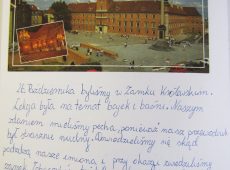 16 Października byliśmy w Zamku Królewskim.
Lekcja była na temat bajek i baśni. Naszym
zdaniem mieliśmy pecha, ponieważ nasz przewodnik
był strasznie nudny. Dowiedzieliśmy się skąd
pochodzą nasze imiona i przy okazji zwiedziliśmy